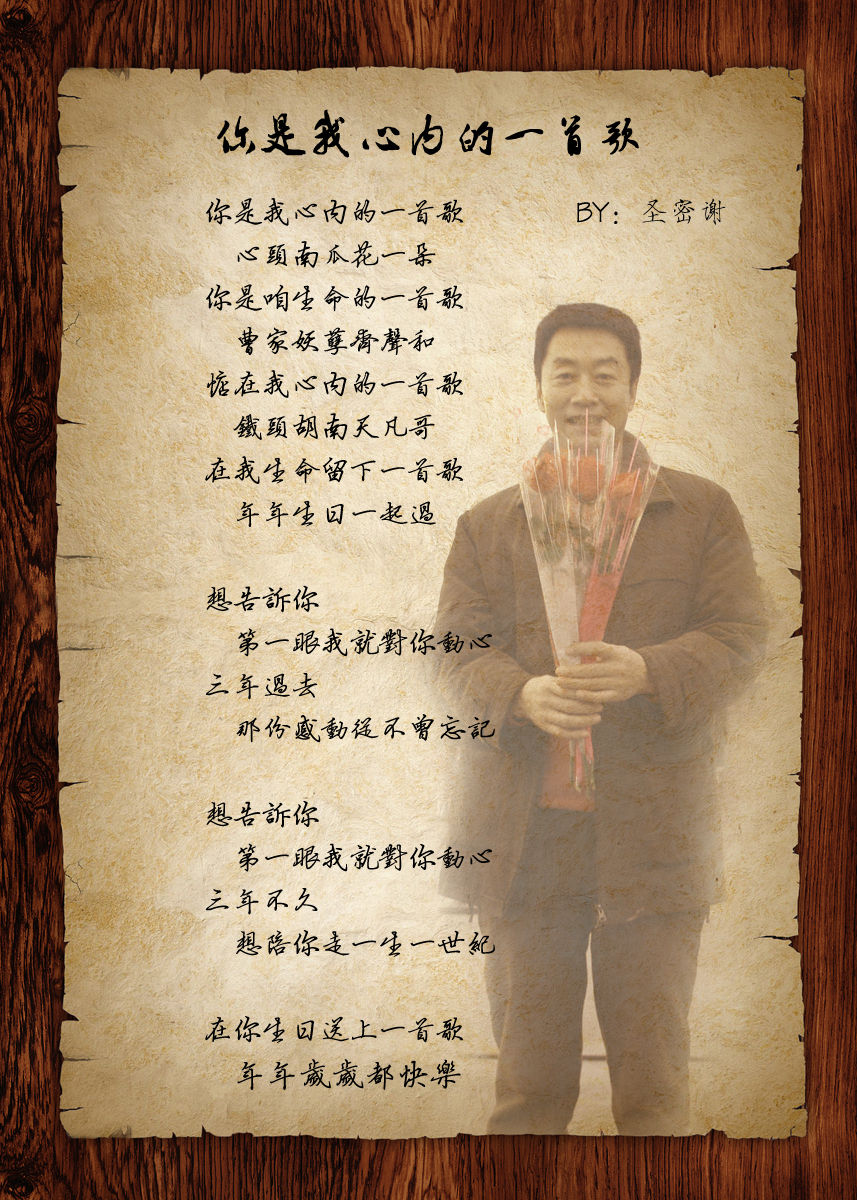 你是我心内的一首歌
BY：圣密谢
你是我心内的一首歌
心頭南瓜花一朵
你是咱生命的一首歌
曹家妖孽齊聲和
惦在我心内的一首歌
鐵頭胡南天凡哥
在我生命留下一首歌
年年生日一起過
想告訴你
第一眼我就對你動心
三年過去
那份感動從不曾忘記
想告訴你
第一眼我就對你動心
三年不久
想陪你走一生一世紀
在你生日送上一首歌
年年歲歲都快樂